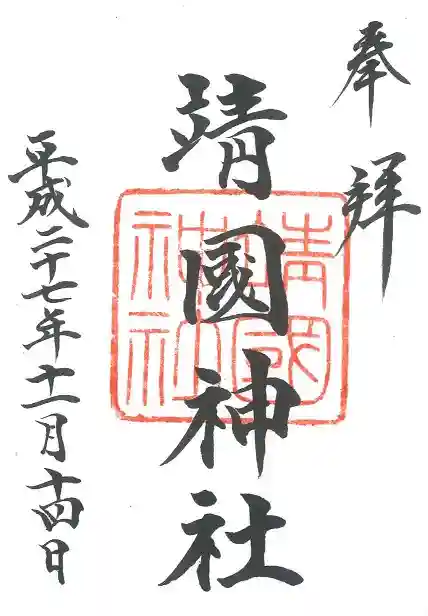 奉拝
靖國神社
靖國神社
平成二十七年十一月十四日